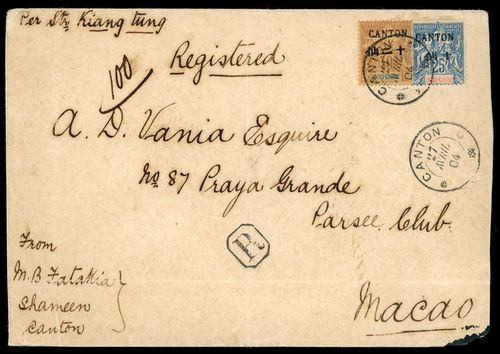 Per Str Kiang tung
Registered
100
CANTON
CANTON
25
A. D. Vania Esquire
No 87 Praya Grande
Parsee Club.
Macao
CANTON
27
AVRIL
04
R
From
M. B Fatakia
Shameen
Canton